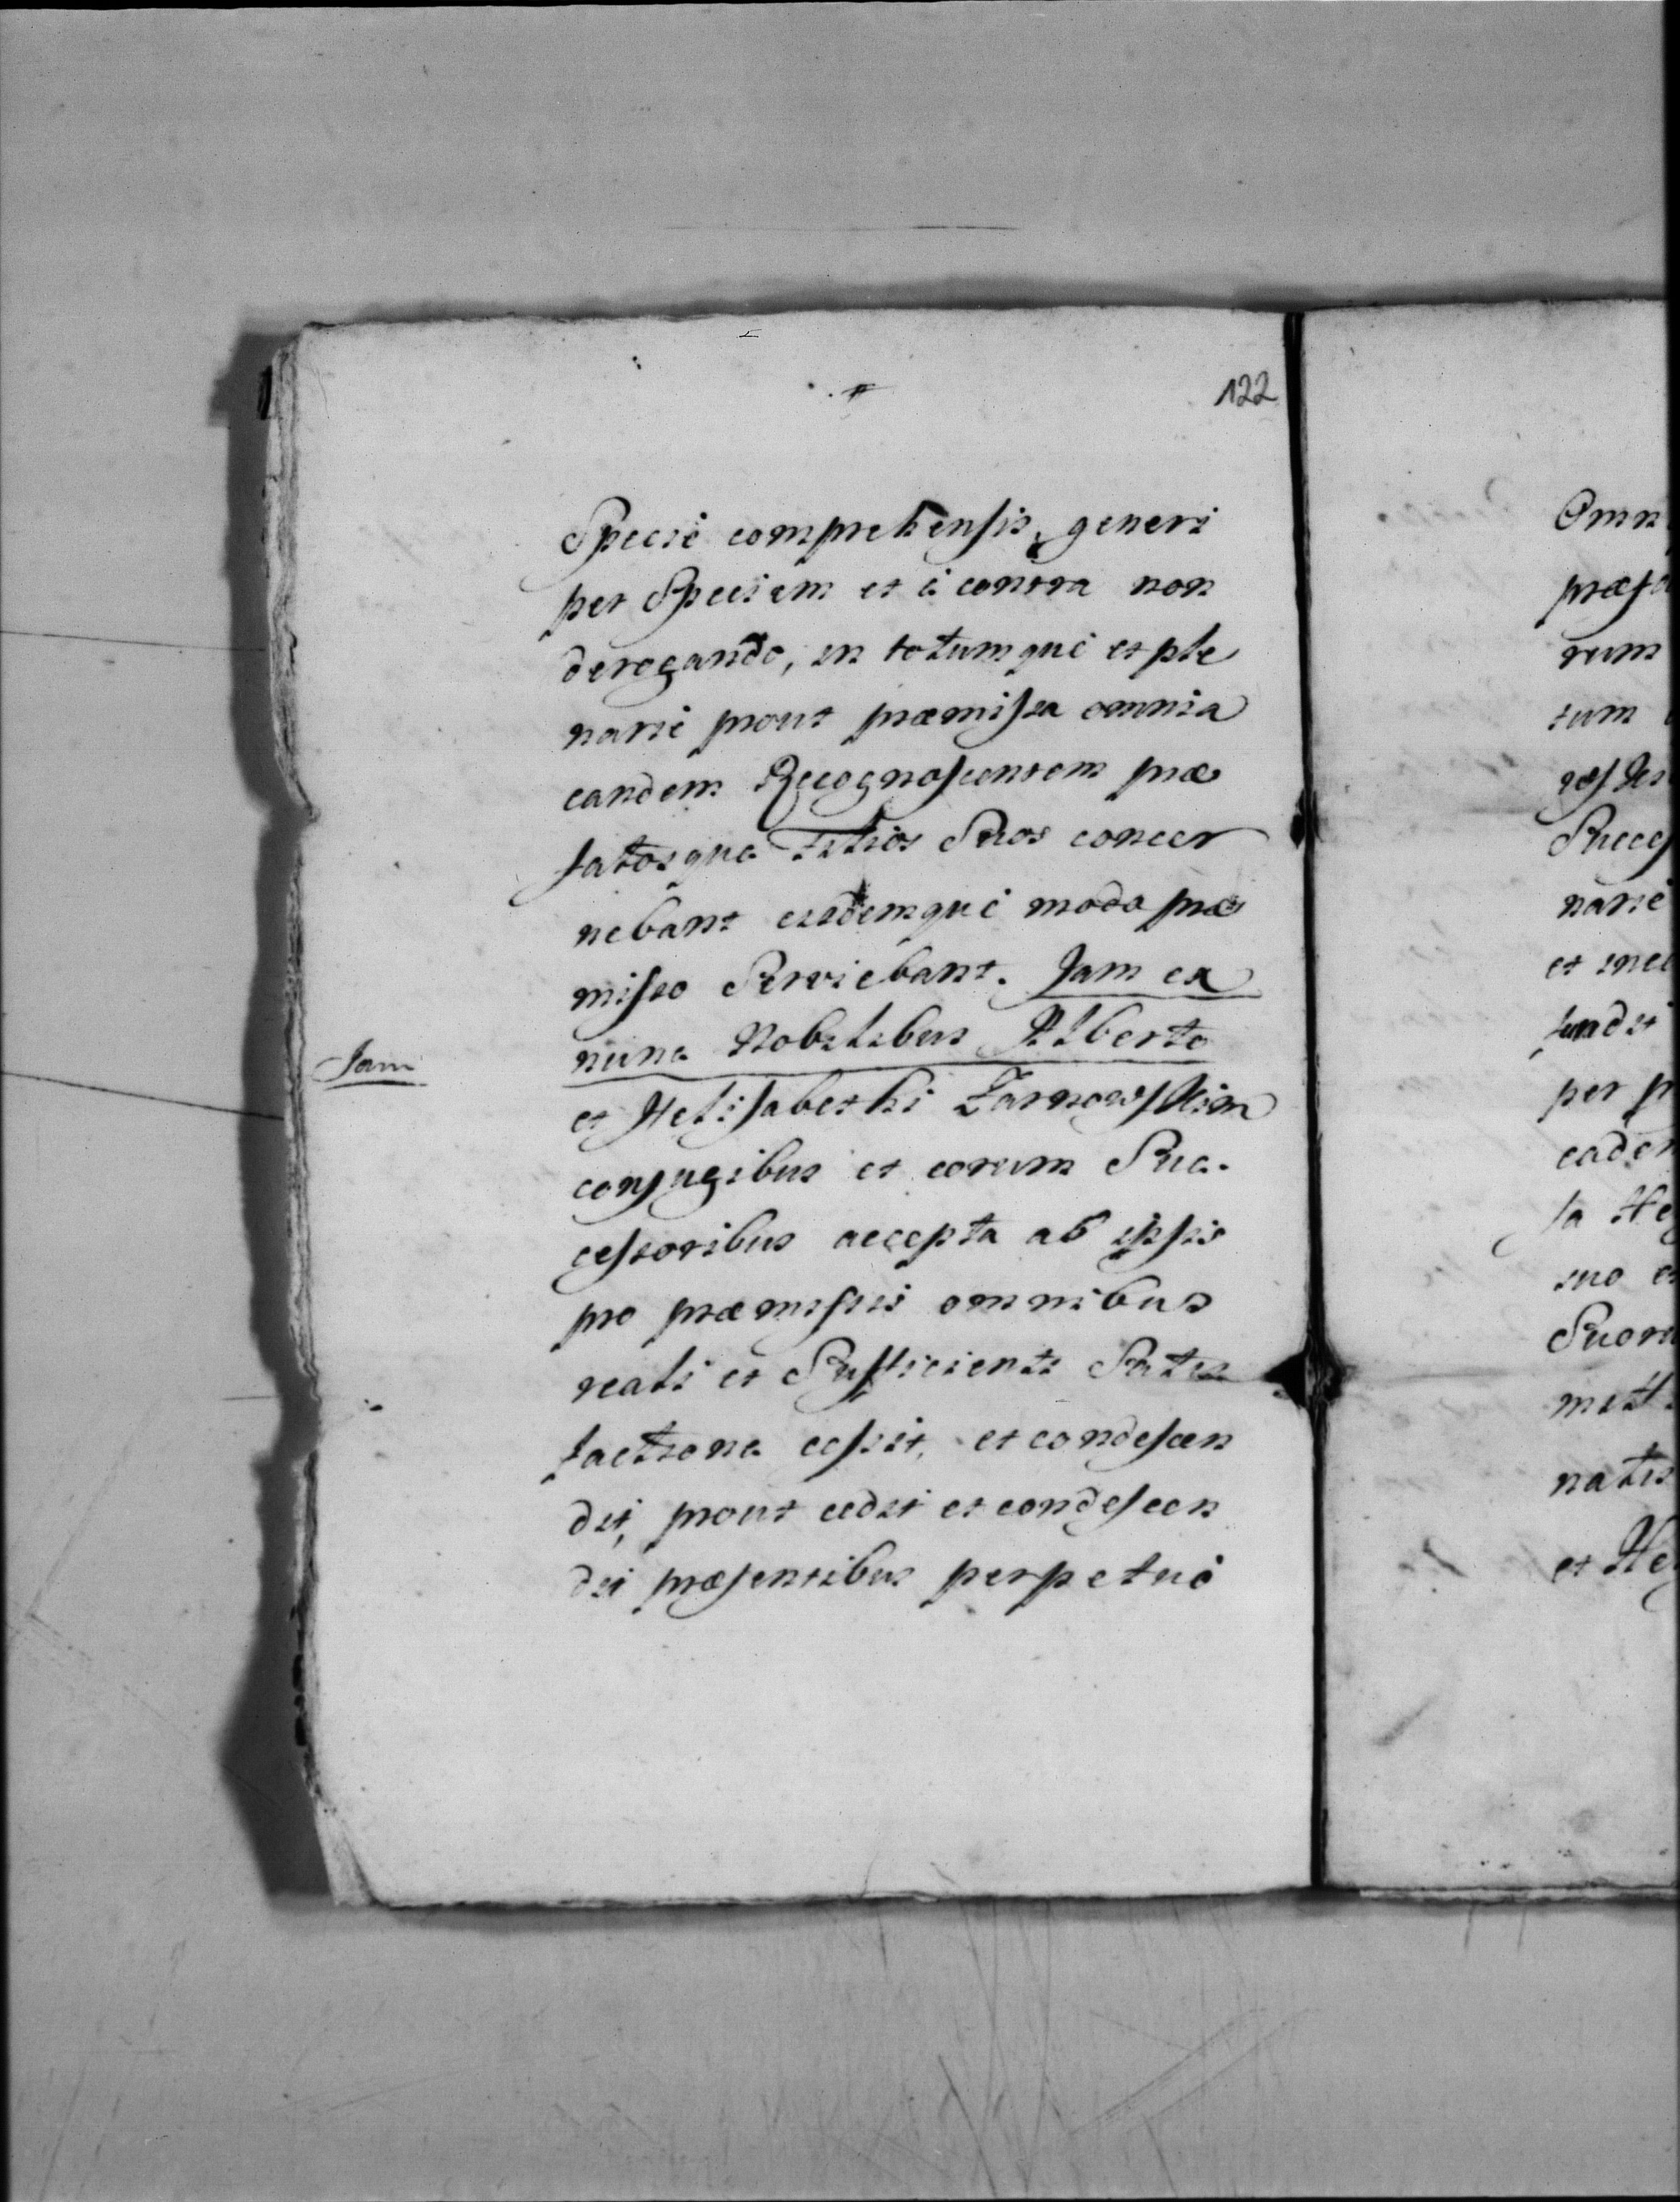 122
Specie comprehensis, generi
per Speciem et è contra non
derogando, in totumque et ple
narie prout præmissa omnia
eandem Recognoscentem præ
fatosque Filios Suos concer
nebant eisdemque modo præ
misso Serviebant. Jam ex
nunc Nobilibus Alberto
Jam
et Helisabethi Zarnowskim
conjugibus et eorum Suc.
cessoribus accepta ab ipsis
pro præmissis omnibus
reali et Sufficienti Satis
factione cessit, et condescen
dit, prout cedit et condescen
dit præsentibus perpetuè
Omn
præfa
rum
tum
Succes
narie
et
per pr
eadem
sa He
suo e
Suoru
mitt
natis
et He